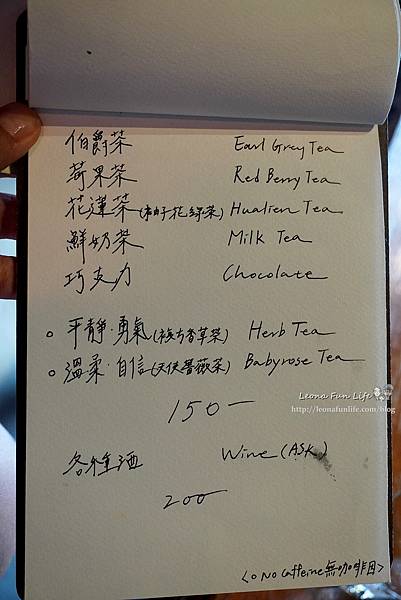 伯爵茶 Earl Grey Tea
莓果茶 Red Berry Tea
花蓮茶(柚子花綠茶) Hualien Tea
鮮奶茶 Milk Tea
巧克力 Chocolate
○ 平靜·勇氣(複方香草茶) Herb Tea
○ 溫柔·自信(天使薔薇茶) Babyrose Tea
150-
各種酒 Wine (ASK)
200
<○ No Caffeine 無咖啡因>
Leona Fun Life
http://leonafunlife.com/blog